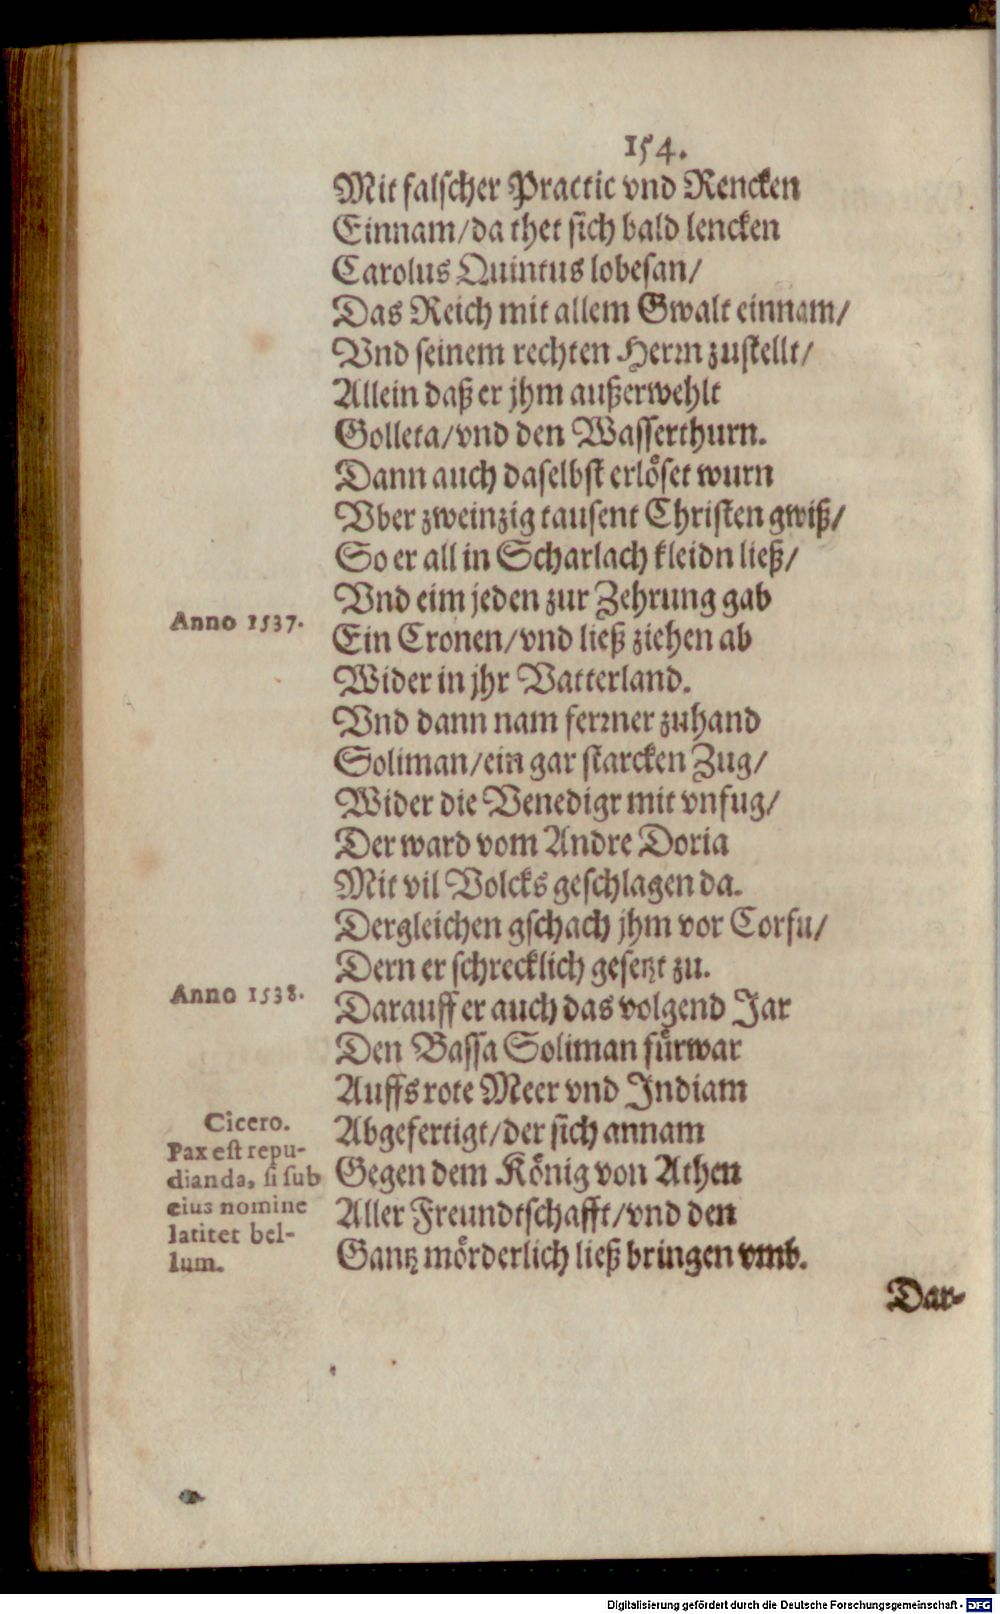 154.
Mit falscher Practic vnd Rencken
Einnam/da thet sich bald lencken
Carolus Quintus lobesan/
Das Reich mit allem Gwalt einnam/
Vnd seinem rechten Herrn zustellt/
Allein daß er jhm außerwehlt
Golleta/vnd den Wasserthurn.
Dann auch daselbst erlöset wurn
Vber zweinzig tausent Christen gwiß/
So er all in Scharlach kleidn ließ/
Vnd eim jeden zur Zehrung gab
Anno 1537.
Ein Cronen/vnd ließ ziehen ab
Wider in jhr Vatterland.
Vnd dann nam ferrner zuhand
Soliman/ein gar starcken Zug/
Wider die Venedigr mit vnfug/
Der ward vom Andre Doria
Mit vil Volcks geschlagen da.
Dergleichen gschach jhm vor Corfu/
Dern er schrecklich gesetzt zu.
Anno 1538.
Darauff er auch das volgend Jar
Den Bassa Soliman fürwar
Auffs rote Meer vnd Indiam
Abgefertigt/der sich annam
Gegen dem König von Athen
Aller Freundtschafft/vnd den
Gantz mörderlich ließ bringen vmb.
Cicero.
Pax est repu-
dianda, si sub
eius nomine
latitet bel-
lum.
Dar-
Digitalisierung gefördert durch die Deutsche Forschungsgemeinschaft - DFG